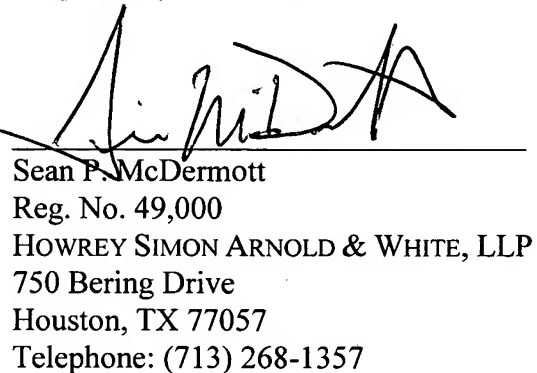 Sean P. McDermott
Reg. No. 49,000
HOWREY SIMON ARNOLD & WHITE, LLP
750 Bering Drive
Houston, TX 77057
Telephone: (713) 268-1357